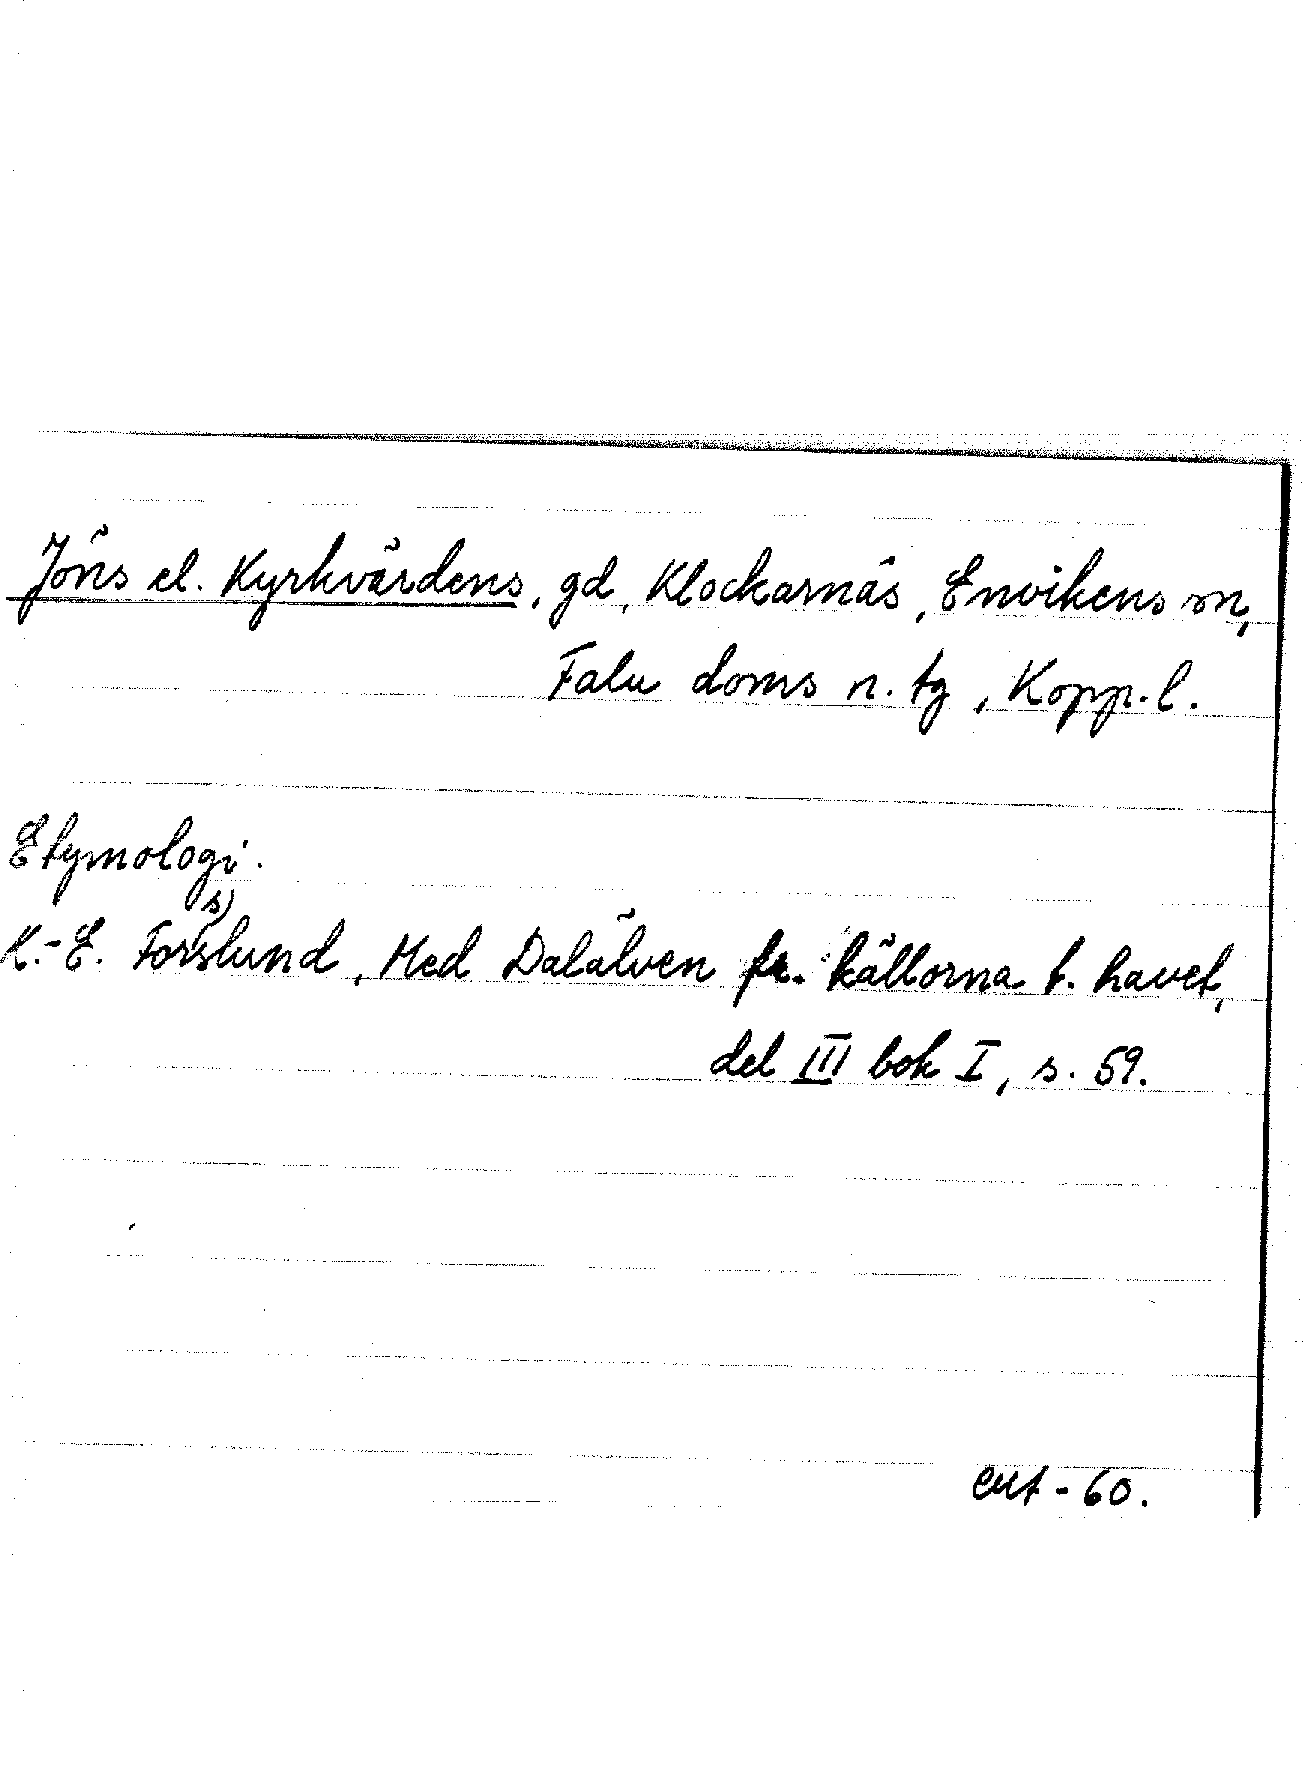 Jöns el. Kyrkvärdens, gd, Klockarnäs, Envikens sn,
Falu doms n. tg, Kopp. l.
Etymologi.
K.-E. Forsslund, Med Dalälven fr. källorna t. havet,
del III bok I, s. 59.
-60.